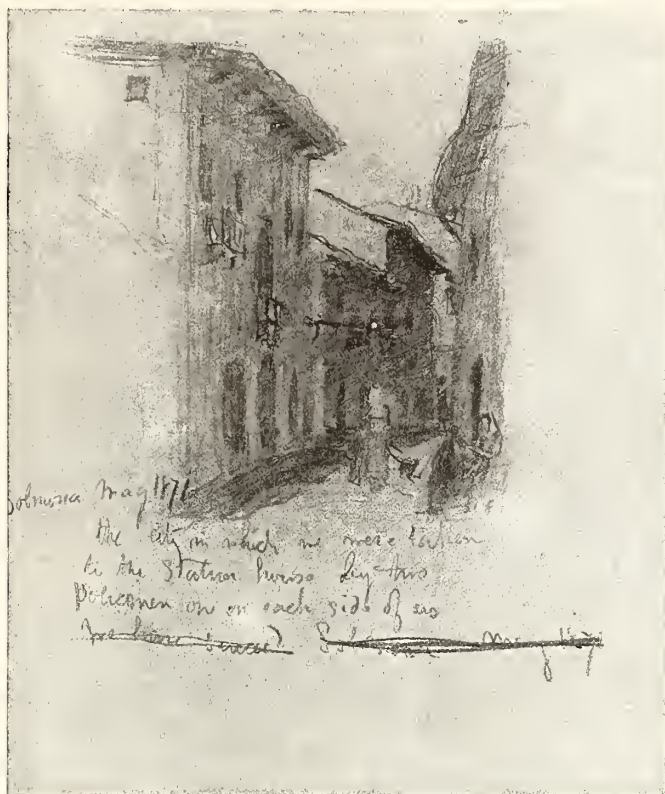 May 1871
the city in which we were taken
to the Station house by two
Policemen on on each side of us
May 1871